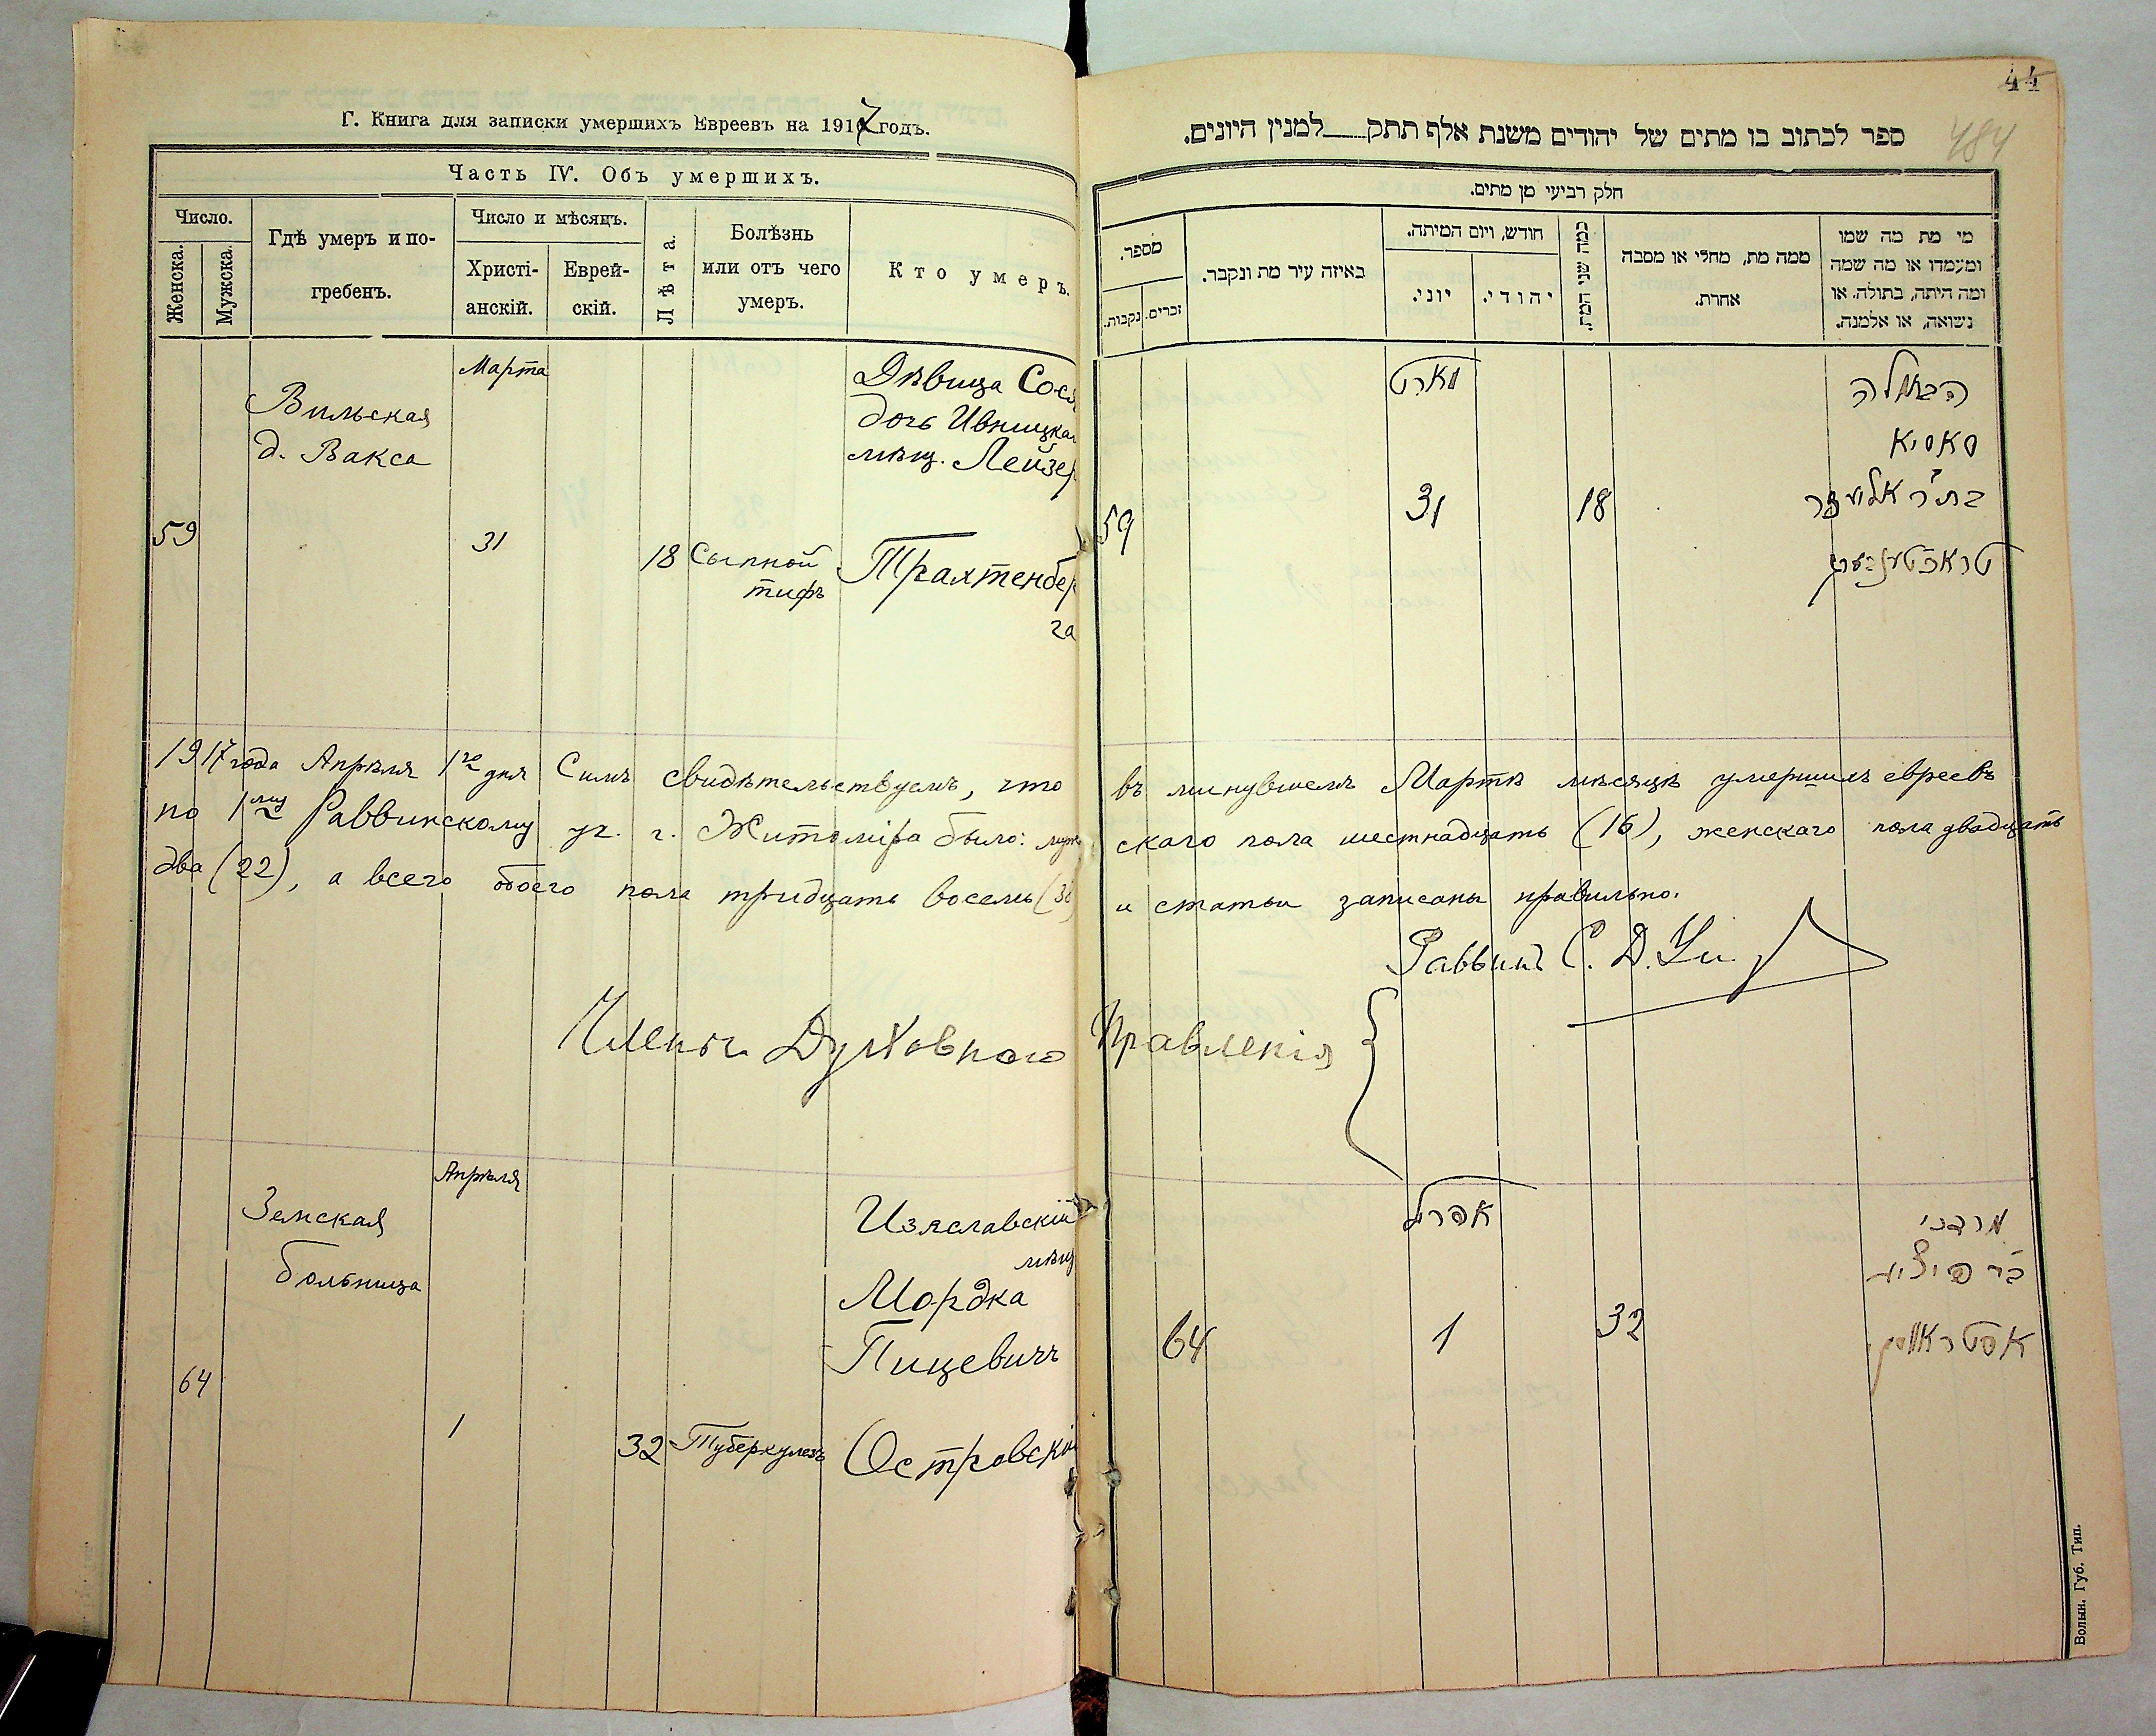 Г. Книга для записки умершихъ Евреевъ на 1917 годъ.
Часть IV. Объ умершихъ.
Число.
Женска.
Мужска.
Гдѣ умеръ и по-
гребенъ.
Число и мѣсяцъ.
Христі-
анскій.
Еврей-
скій.
Лѣта.
Болѣзнь
или отъ чего
умеръ.
Кто умеръ.
Марта
Вильская
д. Вакса
59
31
18
Сыпной
тифъ
Дѣвица Сося
дочь Ивницкаг
мѣщ. Лейзер
Трахтенбер
га
1917 года Апрѣля 1го дня Симъ свидѣтельствуемъ, что въ минувшемъ Мартѣ мѣсяцѣ умершихъ евреевъ
по 1му Раввинскому уч. г. Житоміра было: муж ского пола шестнадцать (16), женскаго пола двадцать
два (22), а всего обоего пола тридцать восемь (38) и статьи записаны правильно.
Раввинъ С. Д.
Члены Духовного Правленія
Апрѣля
Земская
больница
64
1
32
Туберкулезъ
Изяславскій
мѣщ
Мордка
Пицевичъ
Островскій
44
484
ספר לכתוב בו מתים של יהודים משנת אלף תתק למנין היונים.
חלק רביעי מן מתים.
מספר.
נקבות.
זכרים.
באיזה עיר מת ונקבר.
חודש, ויום המיתה.
יוני.
יהודי.
כמה שני המת.
ממה מת, מחלי או מסבה
אחרת.
מי מת מה שמו
ומעמדו או מה שמה
ומה היתה, בתולה, או
נשואה, או אלמנה.
מארט
59
31
18
הבתולה
סאסיא
בת ר' אליעזר
טראכטענבערג
אפריל
64
1
32
מרדכי
אסטראווסקי
Волын. Губ. Тип.